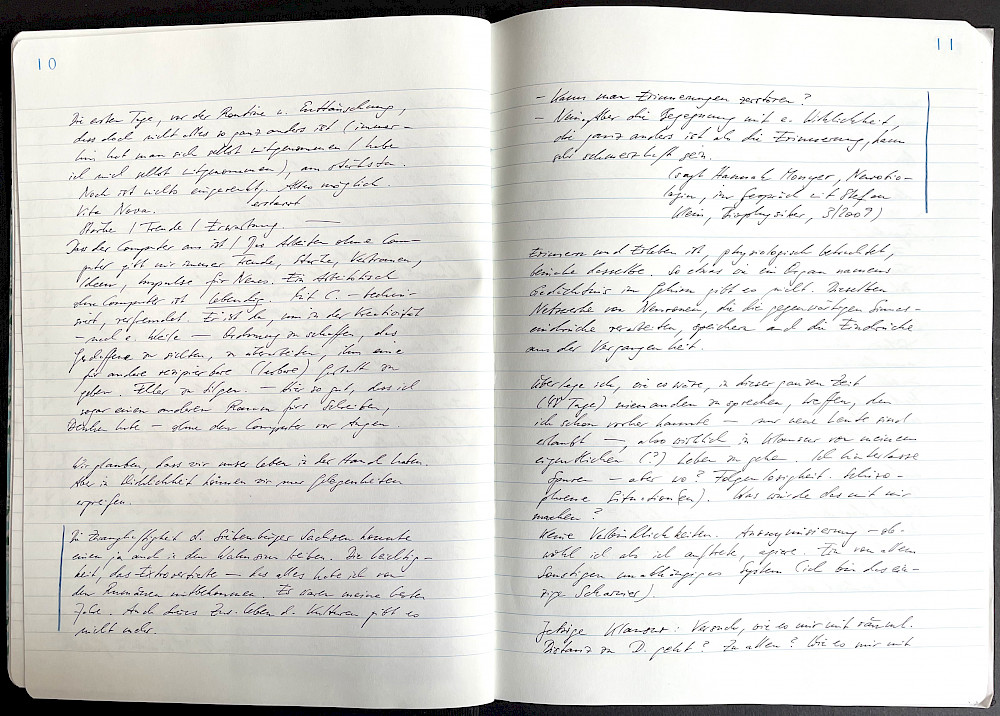 10
Die ersten Tage, vor der Routine u. Enttäuschung,
dass doch nicht alles so ganz anders ist (immer-
hin hat man sich selbst mitgenommen / habe
ich mich selbst mitgenommen), am stärksten.
Noch ist nichts eingerenkt. Alles möglich.
erstarrt
Vita Nova.
Stärke / Freude / Erwartung.
Dass der Computer aus ist / Das Arbeiten ohne Com-
puter gibt mir immer Freude, Stärke, Vertrauen,
Ideen, Impulse für Neues. Ein Arbeitstisch
ohne Computer ist lebendig. Mit C. – techni-
siert, verfremdet. Er ist da, um in der Kreativität
– nach e. Weile – Ordnung zu schaffen, das
Geschaffene zu sichten, zu überarbeiten, ihm eine
für andere rezipierbare (lesbare) Gestalt zu
geben. Fehler zu tilgen. – Hier so gut, dass ich
sogar einen anderen Raum fürs Schreiben,
habe – ohne den Computer vor Augen.
Wir glauben, dass wir unser Leben in der Hand haben.
Aber in Wirklichkeit können wir nur Gelegenheiten
ergreifen.
Die d. Siebenbürger Sachsen konnte
einen ja auch in den Wahnsinn treiben. Die Leichtig-
keit, das Extrovertierte – das alles habe ich von
den Rumänen mitbekommen. Es waren meine besten
Jahre. Auch dieses Zus.leben d. Kulturen gibt es
nicht mehr.
11
– Kann man Erinnerungen zerstören?
– Nein. Aber die Begegnung mit e. Wirklichkeit,
die ganz anders ist als die Erinnerung, kann
sehr schmerzhaft sein.
(sagt Hannah Monyer, Neurobio-
login, im Gespräch mit Stefan
Klein, Biophysiker, 3/2009)
Erinnern und Erleben ist, physiologisch betrachtet,
beinahe dasselbe. So etwas wie ein Organ namens
Gedächtnis im Gehirn gibt es nicht. Dieselben
Netzwerke von Neuronen, die die gegenwärtigen Sinnes-
eindrücke verarbeiten, speichern auch die Eindrücke
aus der Vergangenheit.
Überlege ich, wie es wäre, in dieser ganzen Zeit
(48 Tage) niemanden zu sprechen, treffen, den
ich schon vorher kannte – nur neue Leute sind
erlaubt –, also wirklich in Klausur von meinem
eigentlichen (?) Leben zu gehen. Ich hinterlasse
Spuren – aber wo? Folgenlosigkeit. Schizo-
phrene Situation(en). Was würde das mit mir
machen?
Keine Verbindlichkeiten. Anonymisierung – ob-
wohl ich als ich auftrete, agiere. Ein von allem
Sonstigen unabhängiges System (ich bin das ein-
zige Scharnier).
Jetzige Klausur: Versuch, wie es mir mit räuml.
Distanz zu D. geht? Zu allem? Wie es mir mit